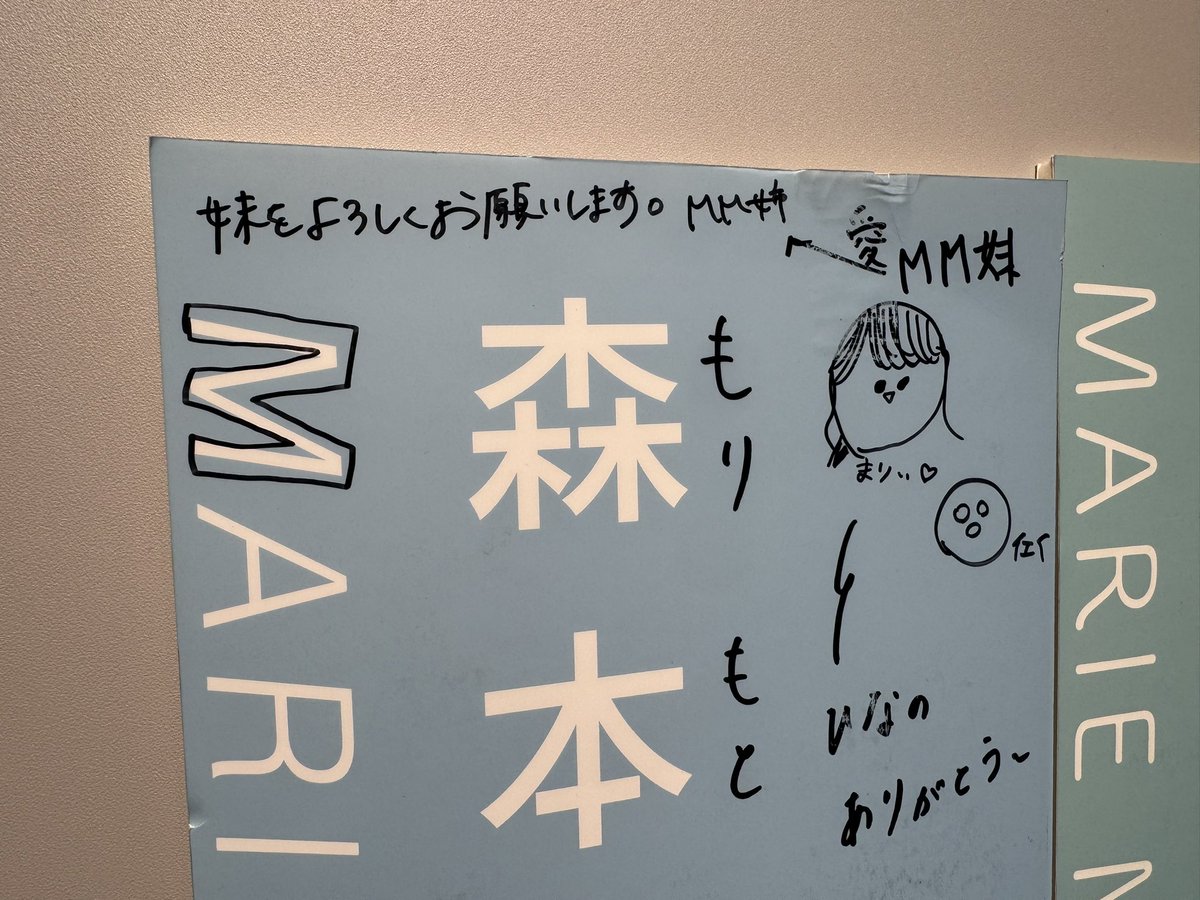 妹をよろしくお願いします。MM姉
愛MM妹
MARI
森本
もりもと
まりぃ♡
ひなの
ありがとう〜
MARIE